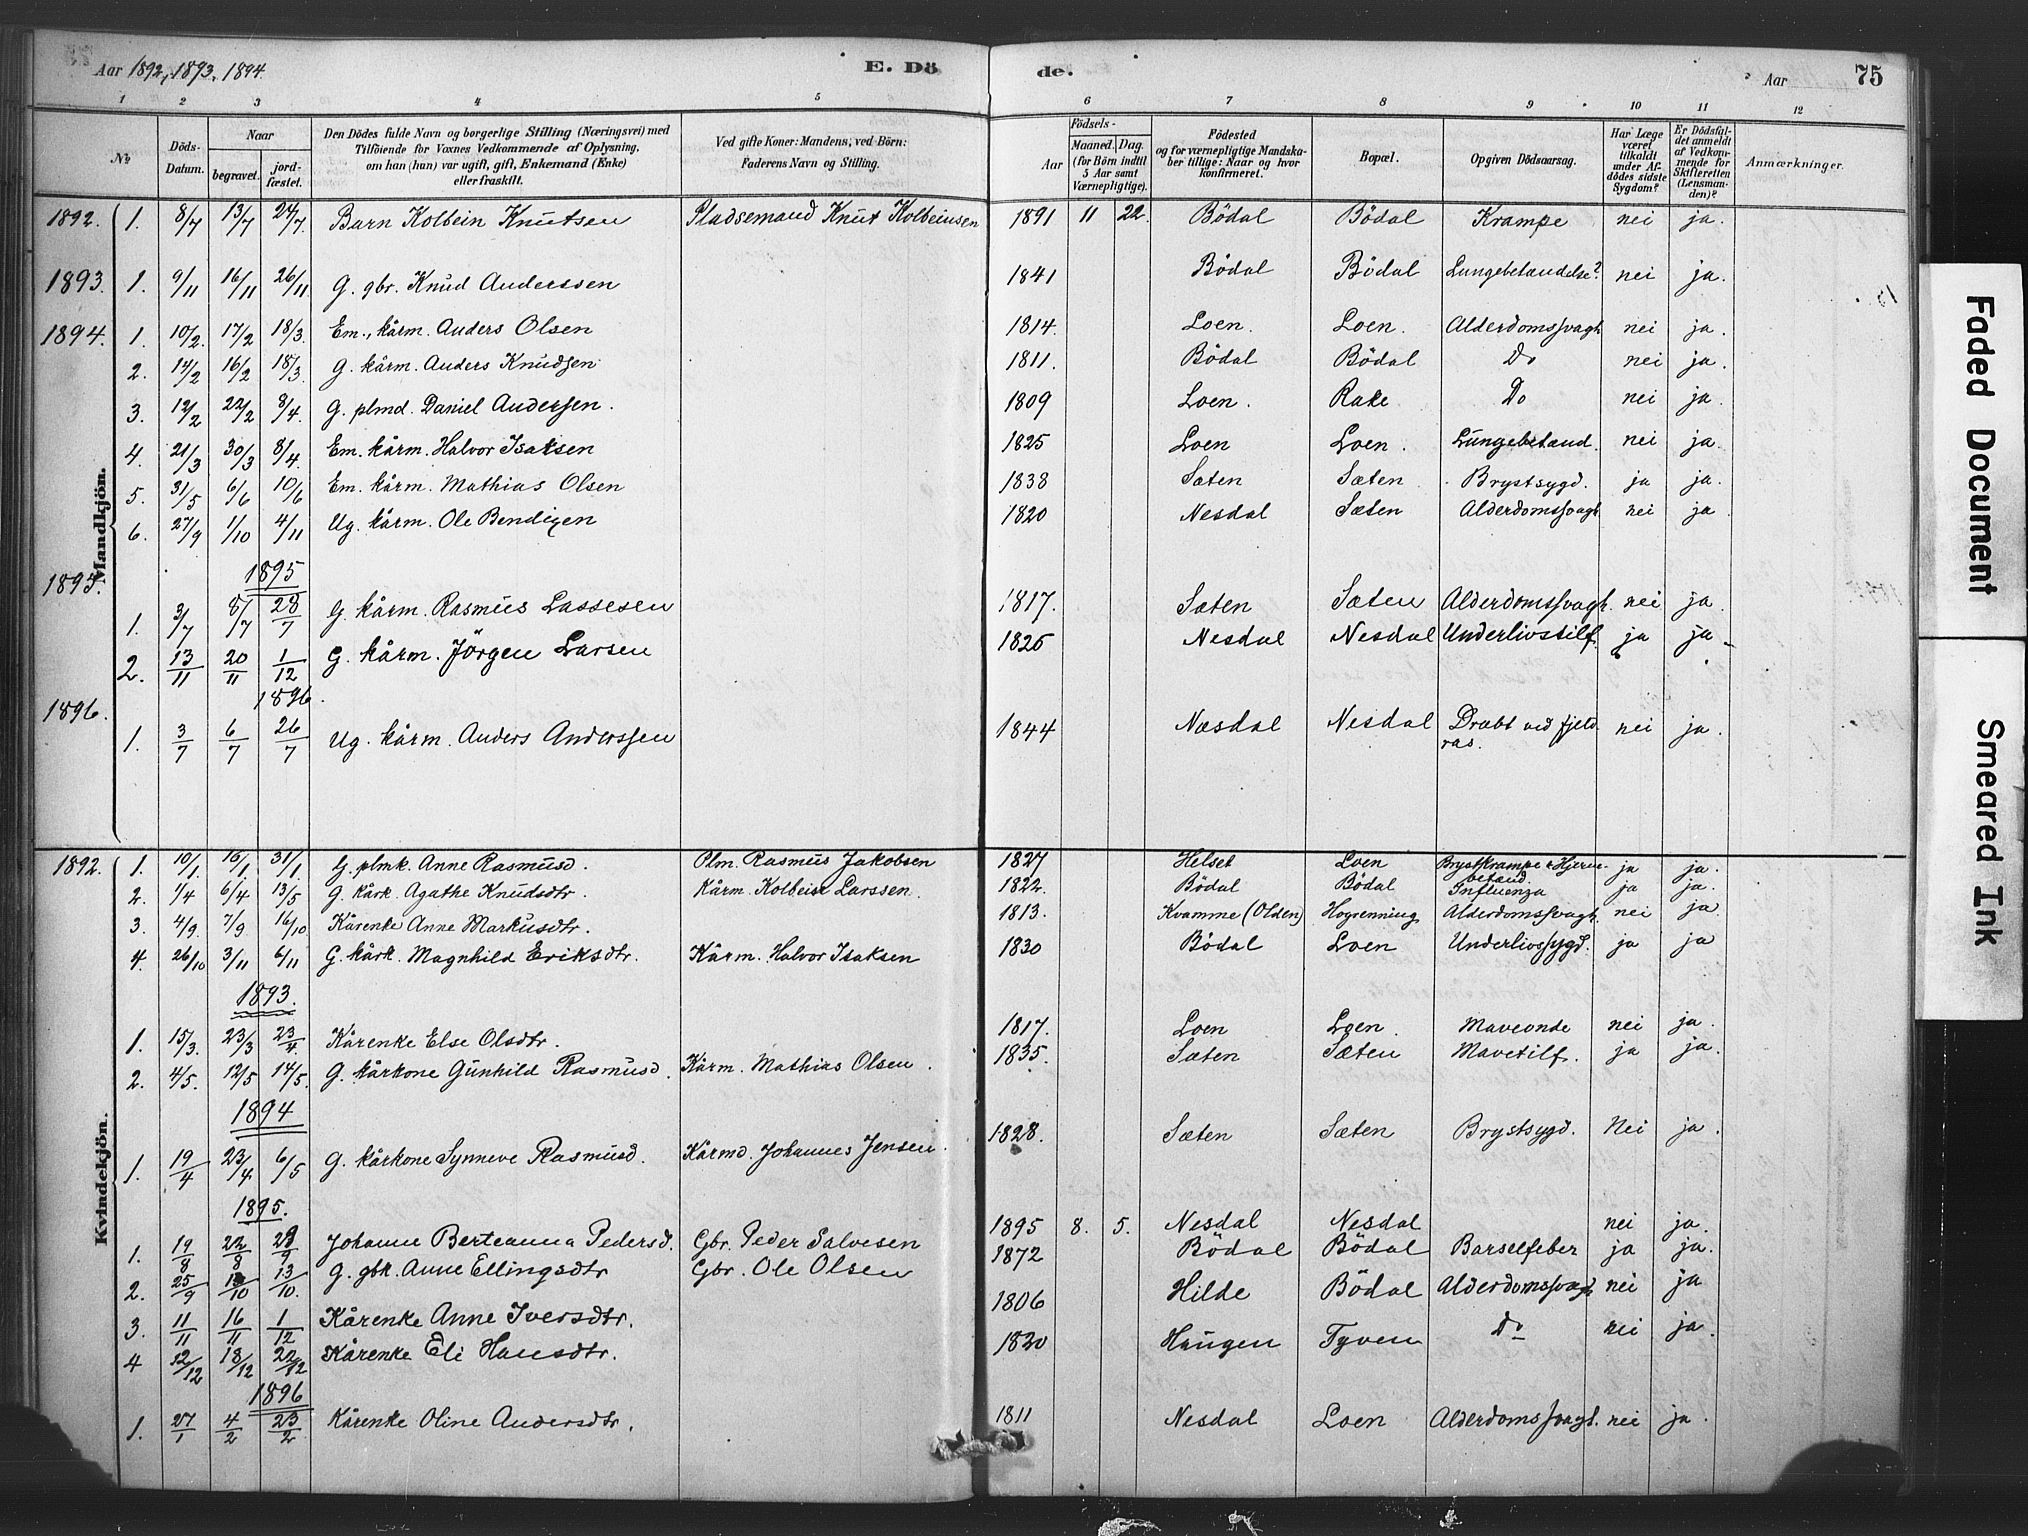 Aar 1892, 1893, 1894. E. Dö de. Aar 75
1 2 3 4 5 6 7 8 9 10 11 12
No Döds-Datum. Naar begravet. jord-fæstet. Den Dödes fulde Navn og borgerlige Stilling (Næringsvei) med Tilföiende for Voxnes Vedkommende af Oplysning, om han (hun) var ugift, gift, Enkemand (Enke) eller fraskilt. Ved gifte Koner: Mandens, ved Börn: Faderens Navn og Stilling. Födsels- Aar Maaned. Dag. (for Börn indtil 5 Aar samt Værnepligtige). Födested og for værnepligtige Mandska-ber tillige: Naar og hvor konfirmeret. Bopæl. Opgiven Dödsaarsag. Har Læge været tilkaldt under Af-dödes sidste Sygdom? Er Dödsfal-det anmeldt af Vedkom-mende for Skifteretten (Lensman-den)? Anmærkninger.
Mandkjön.
1892. 1. 8/7 13/7 24/7. Barn Kolbein Knutsen Pladsemand Knut Kolbeinsen 1891 11 22. Bödal Bödal Krampe nei ja.
1893. 1. 9/11 16/11 26/11. G. gbr. Knud Anderssen 1841 Bödal Bödal Lungebetændelse? nei ja.
1894. 1. 10/2. 17/2 18/3. Em., kårm. Anders Olsen 1814. Loen. Loen. Alderdomssvagh. nei ja.
2. 14/2 16/2 18/3. G. kårm. Anders Knudsen 1811. Bödal Bödal Do nei ja.
3. 12/2 22/2 8/4. G. plmd. Daniel Andersen. 1809 Loen. Rake Do nei ja.
4. 21/3 30/3 8/4. Em. kårm. Halvor Isaksen 1825 Loen Loen. Lungebetænd. nei ja.
5. 31/5 6/6 10/6 Em. kårm. Mathias Olsen 1838 Sæten Sæten. Brystsygd. ja ja.
6. 27/9 1/10 4/11 Ug. kårm. Ole Bendixen 1820 Nesdal Sæten Alderdomssvagh. nei ja.
1895. 1895
1. 3/7 8/7 28/7 G. kårm. Rasmus Lassesen 1817. Sæten Sæten Alderdomssvagh. nei ja.
2. 13/11 20/11 1/12 G. kårm. Jörgen Larsen 1826 Nesdal Nesdal Underlivstilf. ja ja
1896. 1896.
1. 3/7 6/7 26/7 Ug. kårm. Anders Anderssen 1844 Næsdal Nesdal Dræbt ved fjeld-ras. nei ja.
Kvindekjön.
1892. 1. 10/1. 16/1 31/1. G. plmk. Anne Rasmusd. Plm. Rasmus Jakobsen 1827 Helset Loen Brystkrampe & Hjerne-betænd. ja ja.
2. 1/4 6/4 13/5 G. kårk. Agathe Knudsdtr. Kårm. Kolbein Larssen. 1822. Bödal Bödal Influenza ja ja.
3. 4/9. 7/9. 16/10 Kårenke Anne Markusdtr. 1813. Kvamme (Olden) Hogrenning Alderdomssvagh. nei ja
4. 26/10 3/11 6/11 G. kårk. Magnhild Eriksdtr. Kårm. Halvor Isaksen 1830 Bödal Loen Underlivssygd. ja ja
1893.
1. 15/3. 23/3 23/4. Kårenke Else Olsdtr. 1817. Loen Loen. Maveonde nei ja.
2. 4/5. 12/5 14/5. G. kårkone Gunhild Rasmusd. Kårm. Mathias Olsen. 1835. Sæten Sæten Mavetilf. ja ja.
1894
1. 19/4 23/4 6/5 G. kårkone Synneve Rasmusd. Kårmd. Johannes Jensen. 1828. Sæten Sæten Brystsygd. Nei ja.
1895.
1. 19/8 22/8 29/9 Johanne Berteanna Pedersd. Gbr. Peder Salvesen 1895 8. 5. Nesdal Nesdal nei ja.
2. 25/9 13/10 13/10. G. gbk. Anne Ellingsdtr Gbr. Ole Olsen 1872 Bödal Bödal Barselfeber ja ja.
3. 11/11 16/11 1/12 Kårenke Anne Iversdtr. 1806 Hilde Bödal Alderdomssvagh. nei ja
4 12/12 18/12 22/12 Kårenke Eli Hansdtr. 1820 Haugen Tyven Do nei ja.
1896
1. 27/1 4/2 23/2 Kårenke Oline Andersdtr. 1811 Nesdal Loen Alderdomssvagh. nei ja.
Faded Document
Smeared Ink